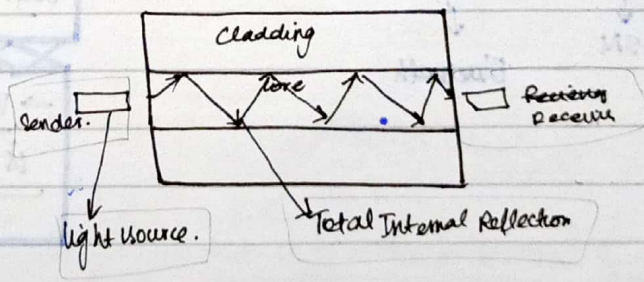 Cladding
Core
Sender.
Receiver
light source.
Total Internal Reflection